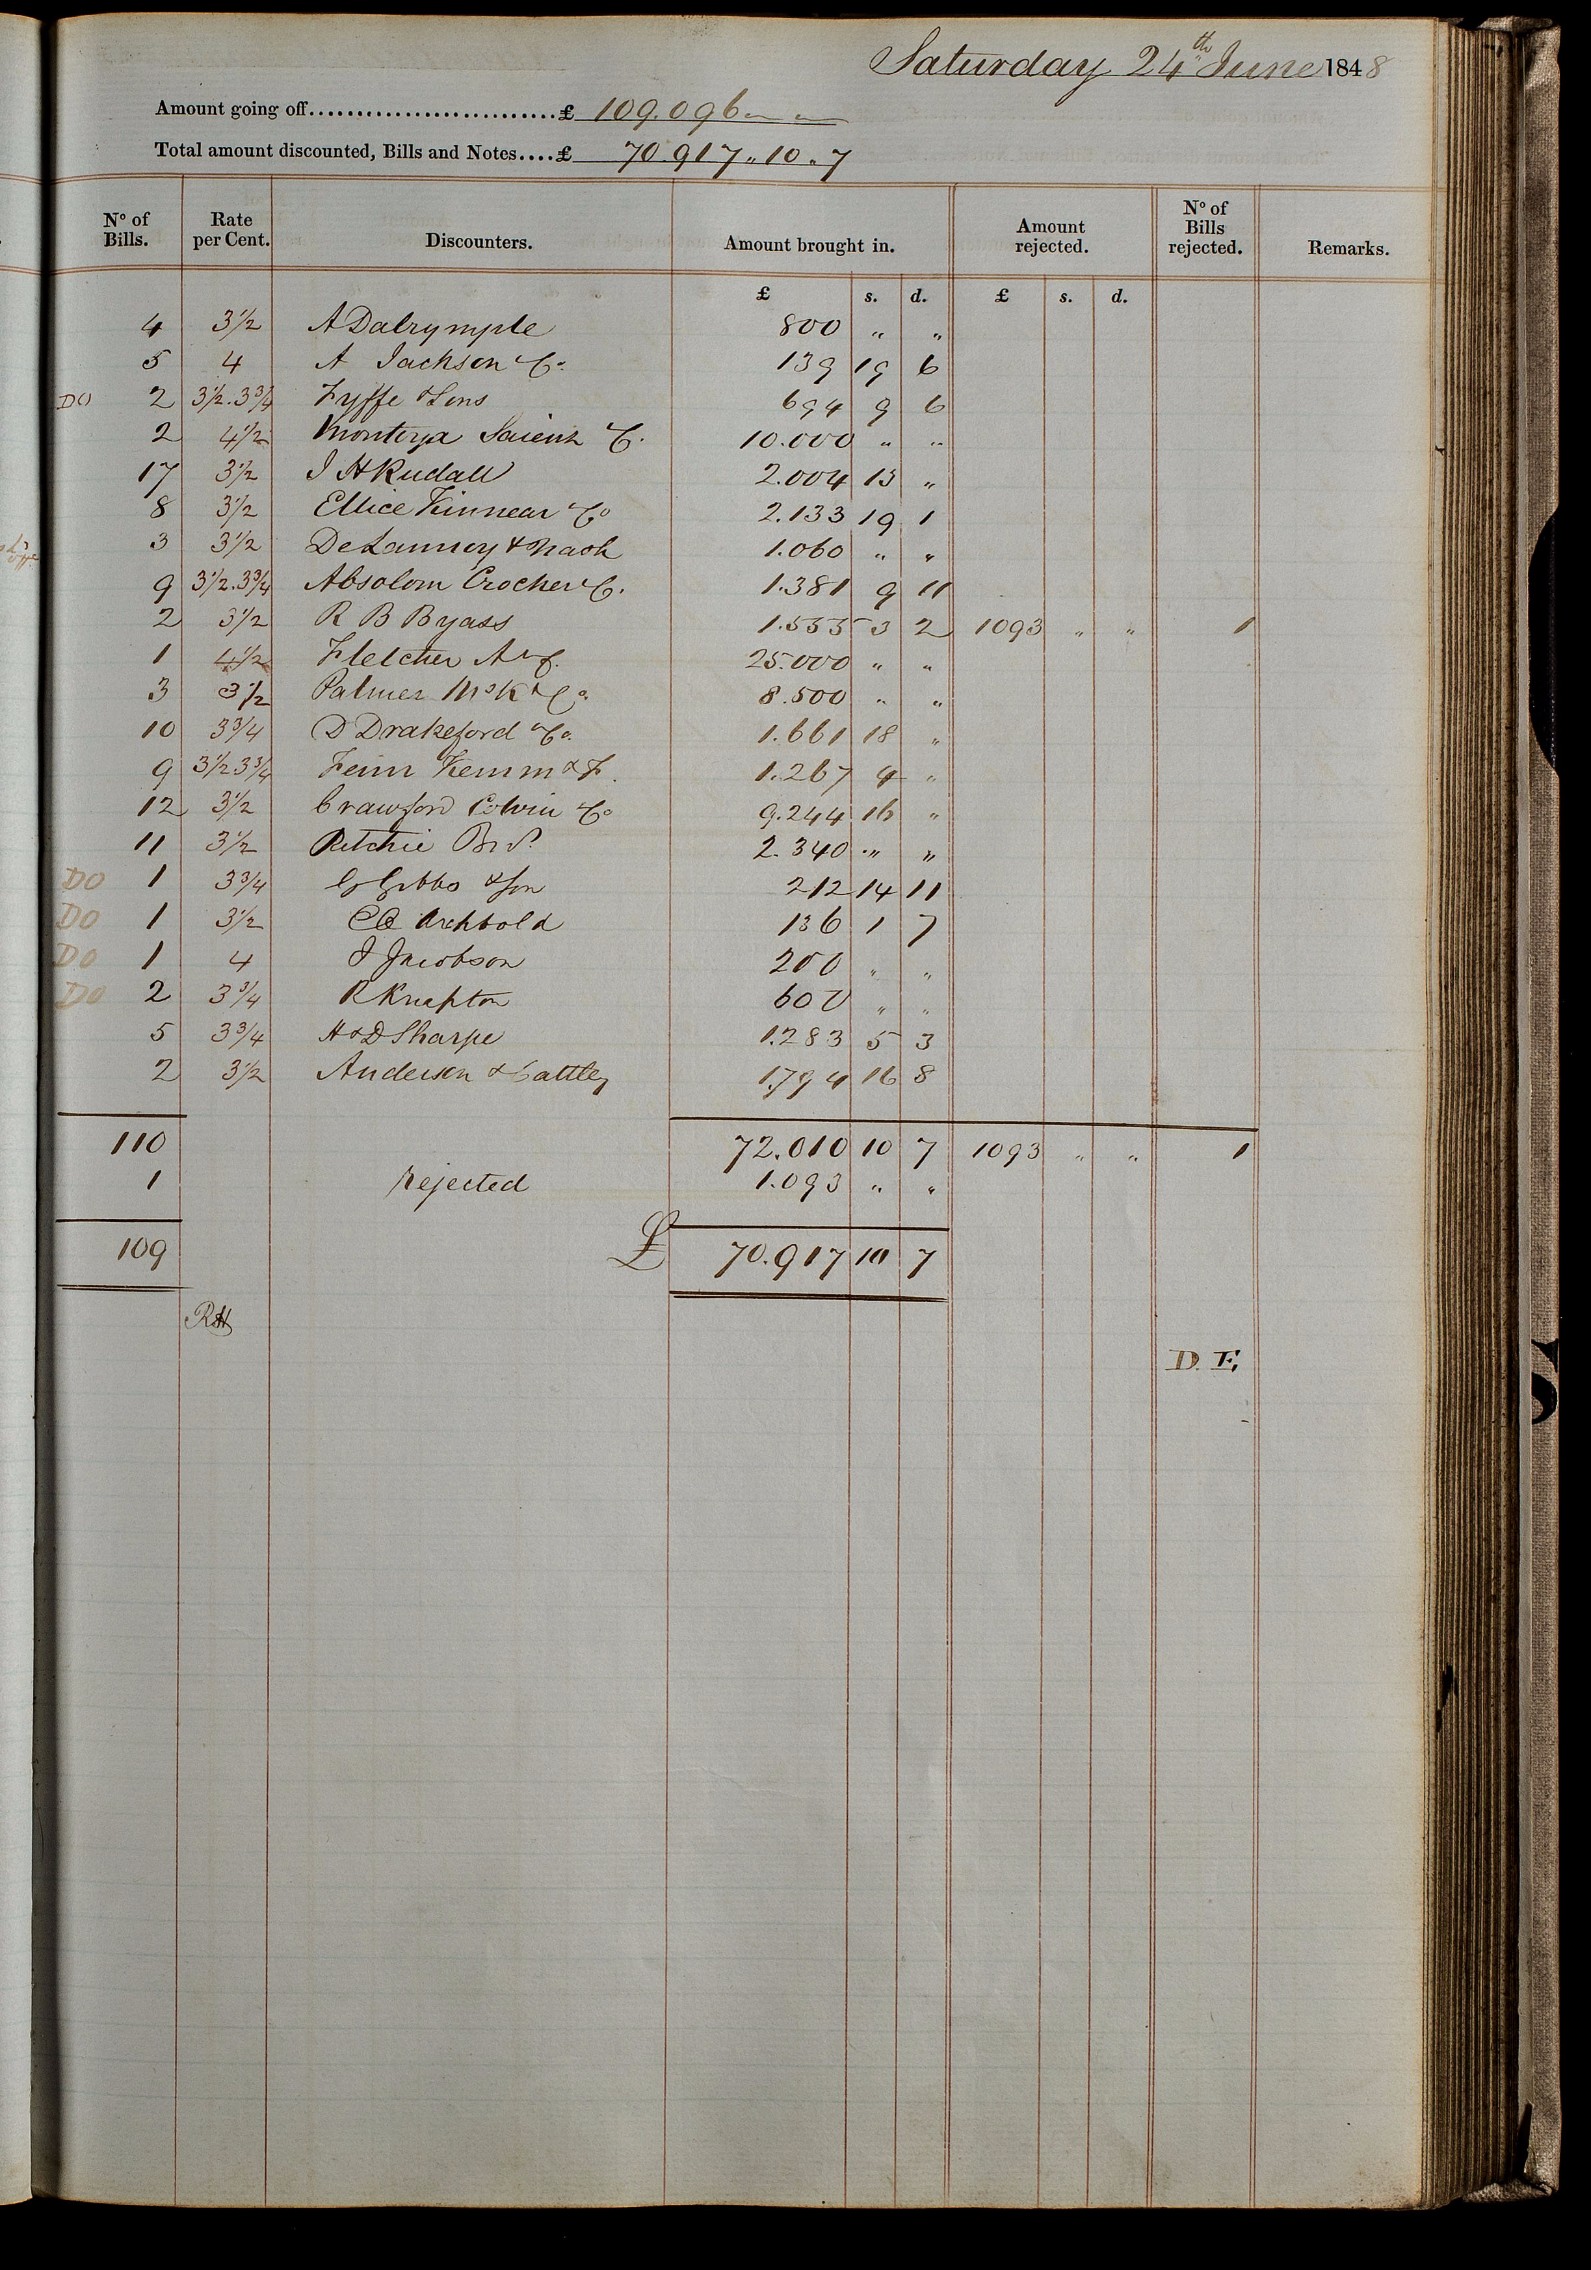 Saturday 24th June 1848
Amount going off...........................£ 109.096 " "
Total amount discounted, Bills and Notes....£ 70.917 " 10 " 7
No of Bills. Rate per Cent. Discounters. Amount brought in. Amount rejected. No of Bills rejected. Remarks.
£ s. d. £ s. d.
4 3½ A Dalrymple 800 " "
5 4 A Jackson & Co. 139 19 6
DO 2 3½.3¾ Fyffe & Sons 694 9 6
2 4½ Montoya Saienz & C. 10.000 " "
17 3½ J H Rudall 2.004 13 "
8 3½ Ellice Kinnear & Co 2.133 19 1
3 3½ DeLannoy & Nash 1.060 " "
9 3½.3¾ Absolom Crocker & C. 1.381 9 11
2 3½ R B Byass 1.555 3 2 1093 " " 1
1 4½ Fletcher A & C. 25.000 " "
3 3½ Palmer McK & Co. 8.500 " "
10 3¾ D Drakeford & Co. 1.661 18 "
9 3½ 3¾ Fenn Kemm & F. 1.267 4 "
12 3½ Crawford Colvin & Co 9.244 16 "
11 3½ Ritchie Bros. 2.340 " "
DO 1 3¾ G Gibbs & Son 212 14 11
DO 1 3½ Archbold 136 1 7
DO 1 4 J Jacobson 200 " "
DO 2 3¾ R Knapton 600 " "
5 3¾ H & D Sharpe 1.283 5 3
2 3½ Anderson & Cattley 1.794 16 8
110 72.010 10 7 1093 " " 1
1 rejected 1.093 " "
109 £ 70.917 10 7
RH
D. F,